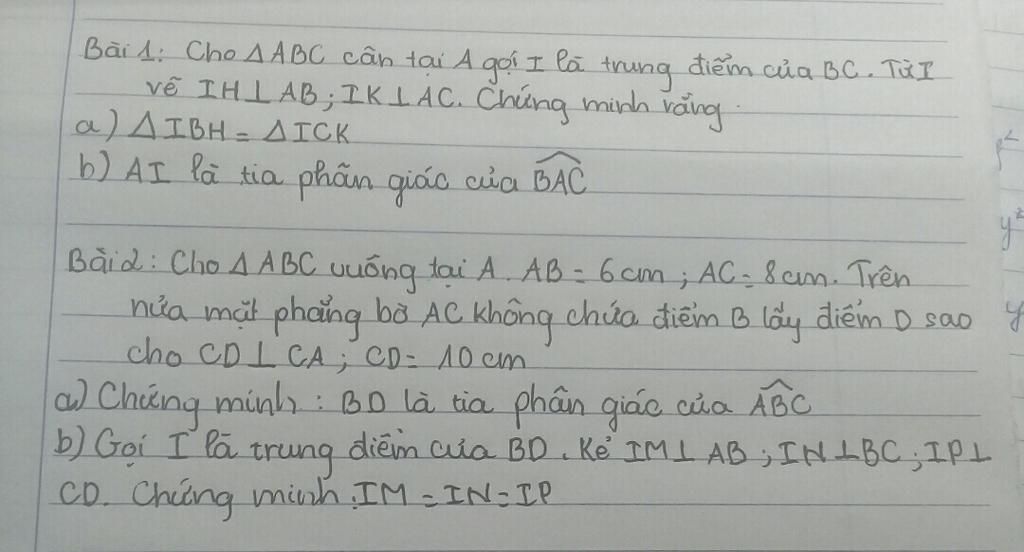 Bài 1: Cho ΔABC cân tại A gọi I là trung điểm của BC. Từ I
vẽ IH⊥AB; IK⊥AC. Chứng minh rằng.
a) ΔIBH = ΔICK
b) AI là tia phân giác của \widehat{BAC}
Bài 2: Cho ΔABC vuông tại A. AB = 6cm; AC = 8cm. Trên
nửa mặt phẳng bờ AC không chứa điểm B lấy điểm D sao
cho CD⊥CA; CD = 10cm
a) Chứng minh: BD là tia phân giác của \widehat{ABC}
b) Gọi I là trung điểm của BD. Kẻ IM⊥AB; IN⊥BC; IP⊥
CD. Chứng minh: IM = IN = IP